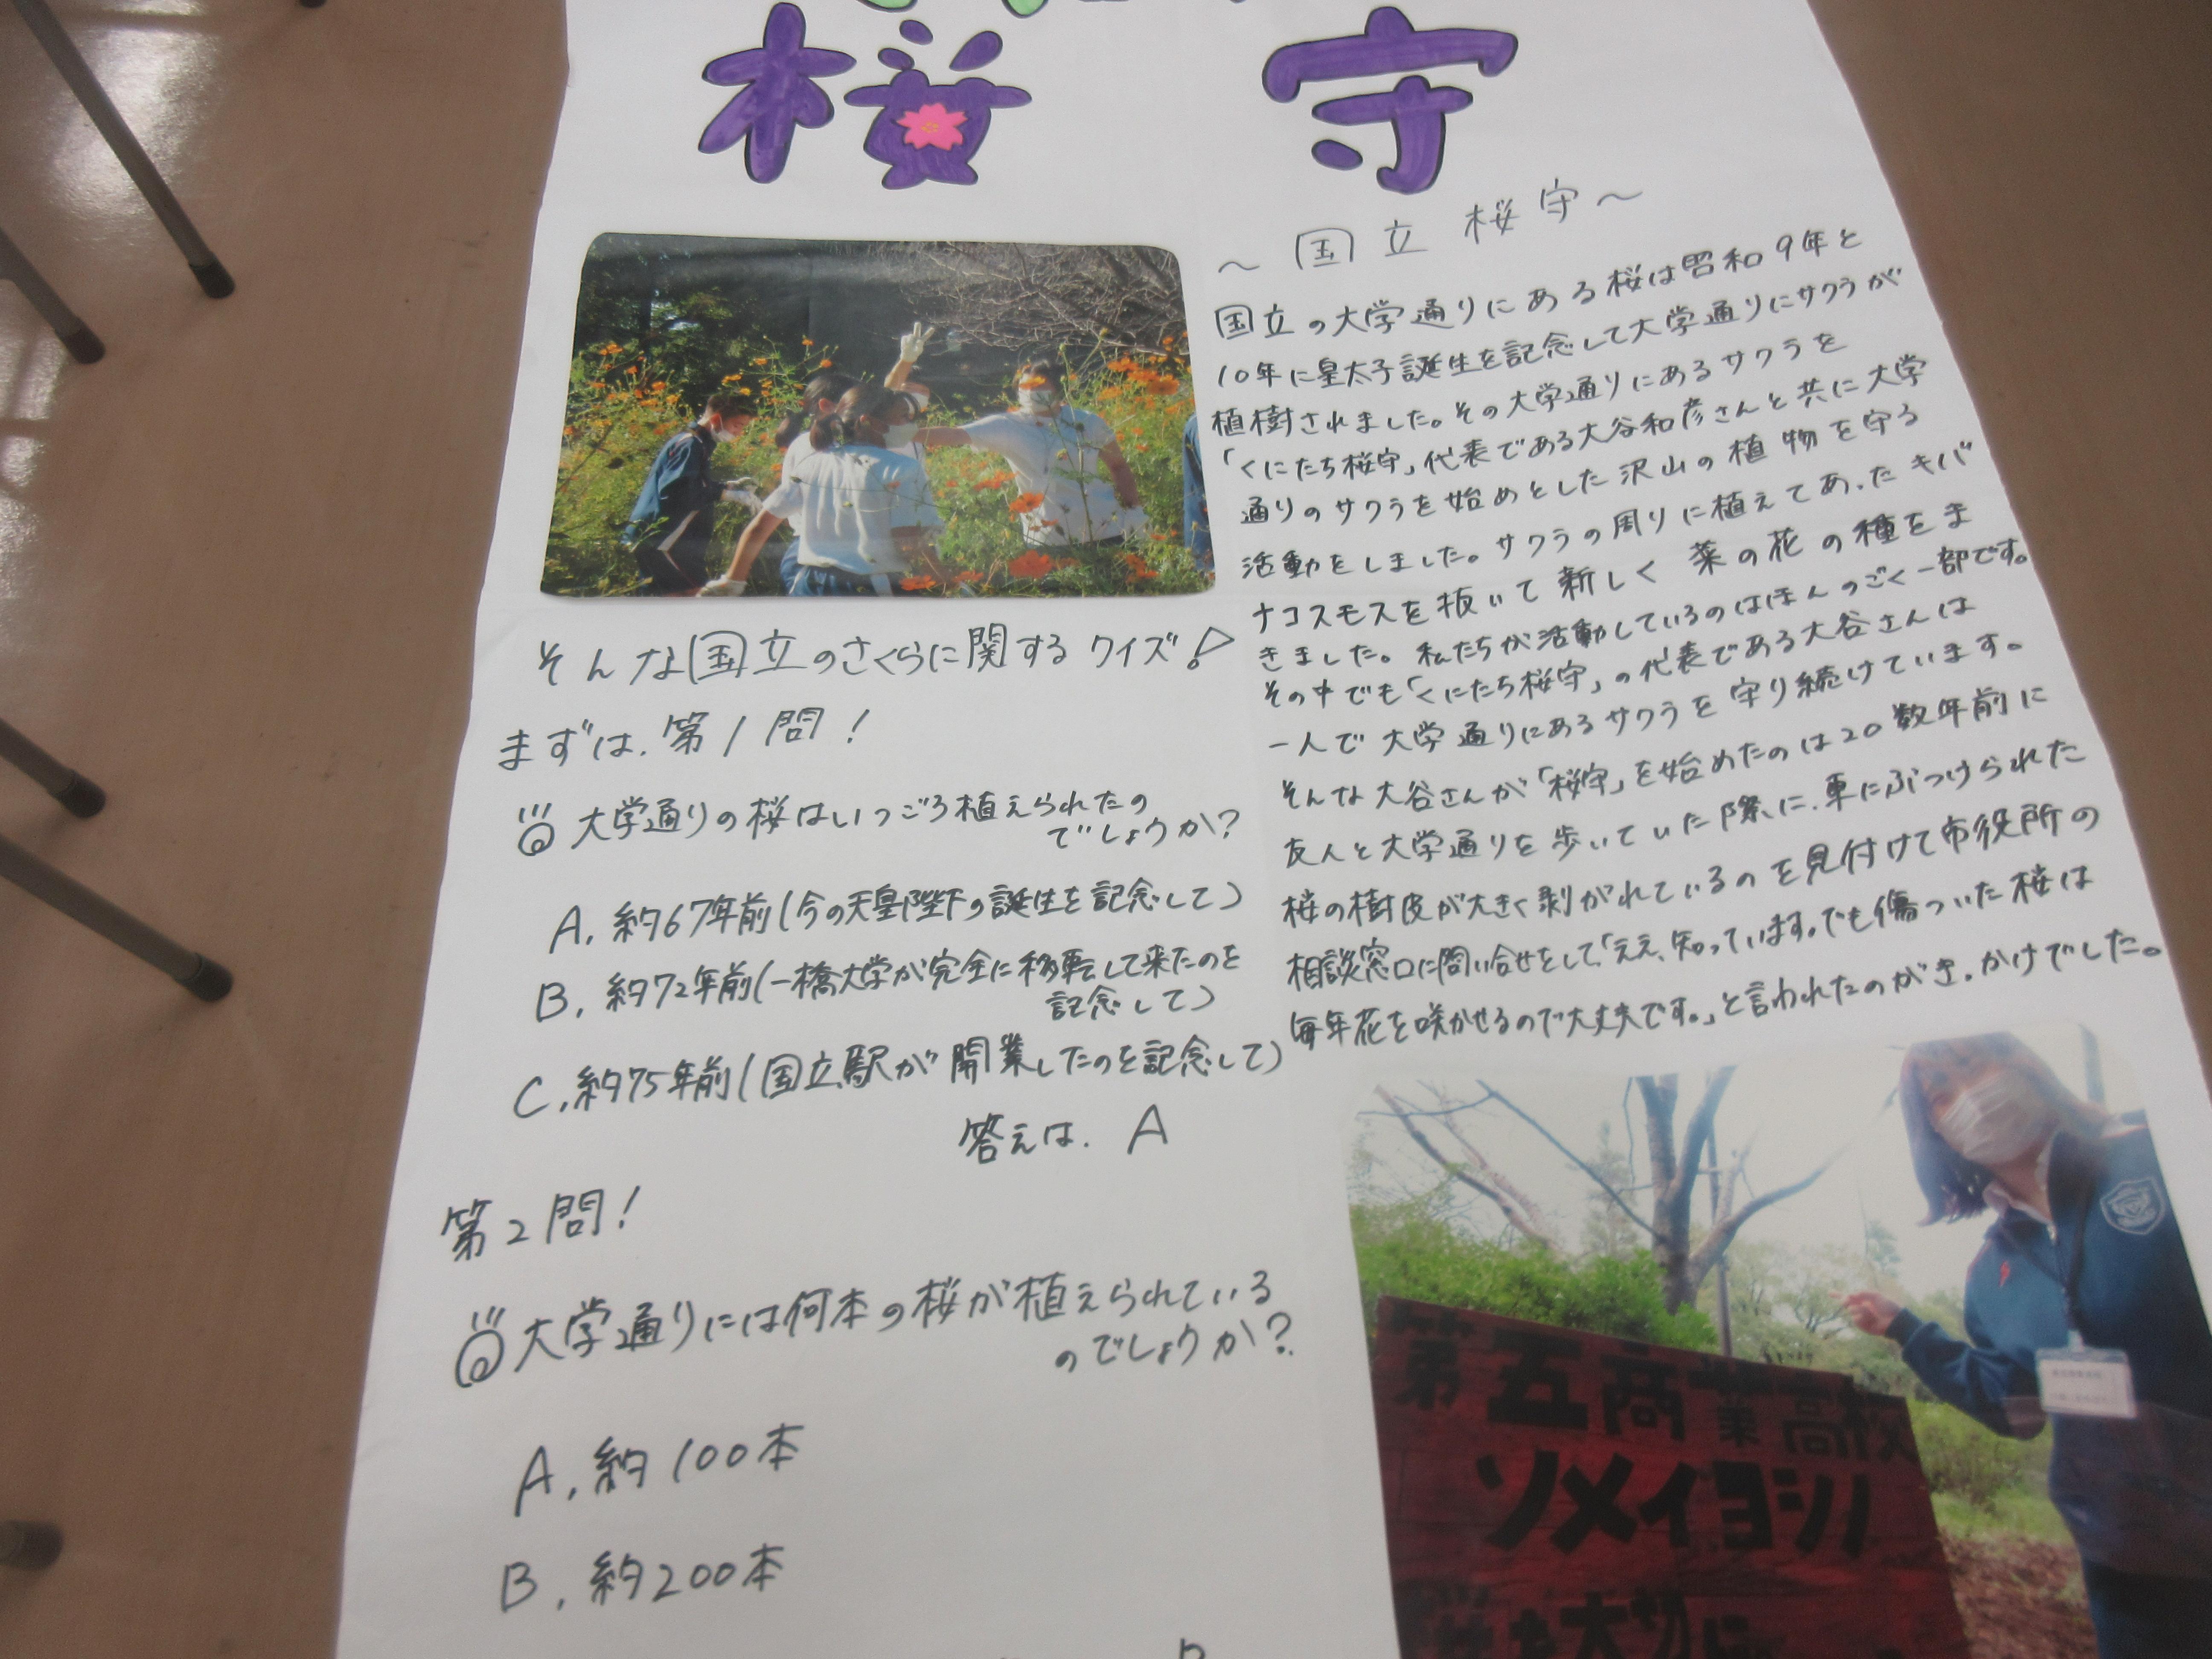 桜守
～国立桜守～
国立の大学通りにある桜は昭和9年と
10年に皇太子誕生を記念して大学通りにサクラが
植樹されました。その大学通りにあるサクラを
「くにたち桜守」代表である大谷和彦さんと共に大学
通りのサクラを始めとした沢山の植物を守る
活動をしました。サクラの周りに植えてあったキバ
ナコスモスを抜いて新しく菜の花の種をま
きました。私たちが活動しているのはほんのごく一部です。
その中でも「くにたち桜守」の代表である大谷さんは
一人で大学通りにあるサクラを守り続けています。
そんな大谷さんが「桜守」を始めたのは20数年前に
友人と大学通りを歩いていた際に、車にぶつけられた
桜の樹皮が大きく剥がれているのを見付けて市役所の
相談窓口に問い合せをして「ええ、知っています。でも傷ついた桜は
毎年花を咲かせるので大丈夫です。」と言われたのがきっかけでした。
そんな国立のさくらに関するクイズ!
まずは、第1問!
大学通りの桜はいつごろ植えられたの
でしょうか?
A. 約67年前(今の天皇陛下の誕生を記念して)
B. 約72年前(一橋大学が完全に移転して来たのを
記念して)
C. 約75年前(国立駅が開業したのを記念して)
答えは、A
第2問!
大学通りには何本の桜が植えられている
のでしょうか?
A. 約100本
B. 約200本
第五商業高校
ソメイヨシノ
桜を大切に